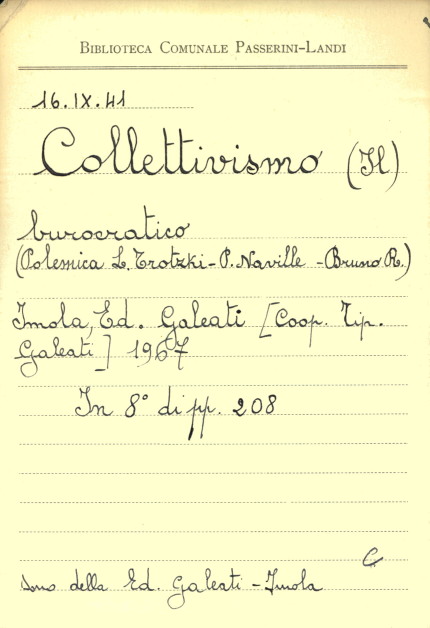 BIBLIOTECA COMUNALE PASSERINI-LANDI
16.IX.41
Collettivismo (Il)
burocratico
(Polemica L. Trotzki - P. Naville - Bruno R.)
Imola, Ed. Galeati [Coop. Tip.
Galeati] 1967
In 8° di pp. 208
C
dono della Ed. Galeati - Imola